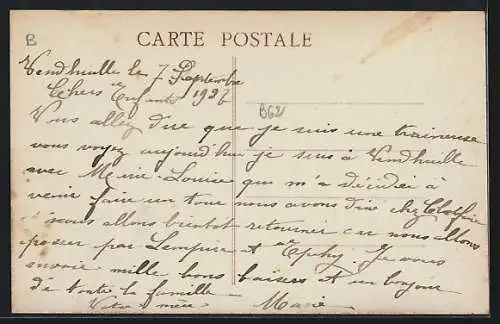 B
CARTE POSTALE
Vendhuille le 7 Septembre
Chers Enfants 1927
B62
Vous allez dire que je suis une traineuse
vous voyez aujourd'hui je suis à Vendhuille
avec Marie-Louise qui m'a décidée à
venir faire un tour nous avons diné chez Clotfire
et nous allons bientot retourner car nous allons
passer par Lempire et Epehy. Je vous
envoie mille bons baisers et un bonjour
de toute la famille
Votre mère Marie